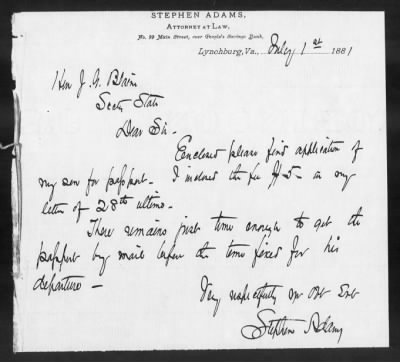 STEPHEN ADAMS,
ATTORNEY AT LAW,
No. 99 Main Street, over People's Savings Bank,
Lynchburg, Va., July 1st 1881
Hon J. G. Blaine
Secty State
Dear Sir -
Enclosed please find application of
my son for passport - I inclosed the fee $5 in my
letter of 28th ultimo -
There remains just time enough to get the
passport by mail before the time fixed for his
departure -
Very respectfully yr Obt Svt
Stephen Adams